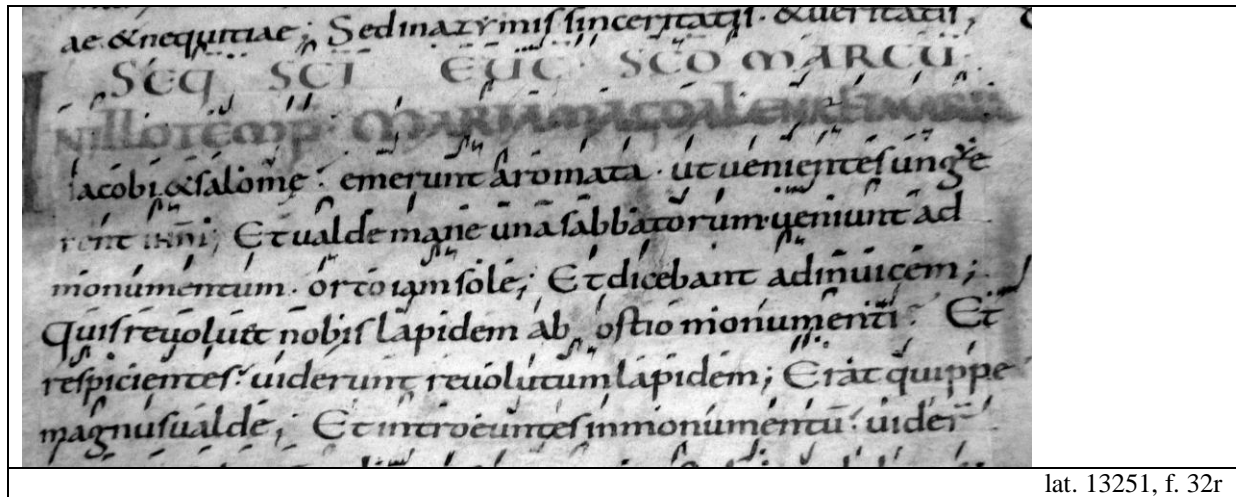 ae. & nequitiae; Sed in azymis sinceritatis. & veritatis,
SEQ SC̄I EŪG SC̄DO MARCŪ.
IN illo temp. MARIA MAGDALENE ET MARIA
iacobi. & salome. emerunt aromata. ut venientes unge
rent ; Et ualde mane una sabbatorum. ueniunt ad
monumentum. orto iam sole; Et dicebant ad inuicem;
Quis reuoluet nobis lapidem ab ostio monumenti? Et
respicientes. uiderunt reuolutum lapidem; Erat quippe
magnus ualde; Et introeuntes in monumentū. uider̄
lat. 13251, f. 32r